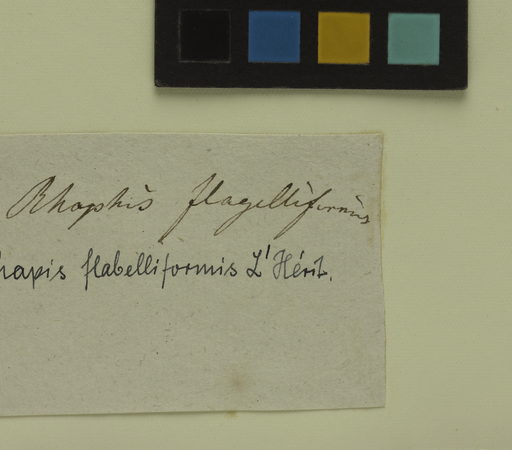 Rhaphis flagelliformis
hapis flabelliformis L'Hérit.